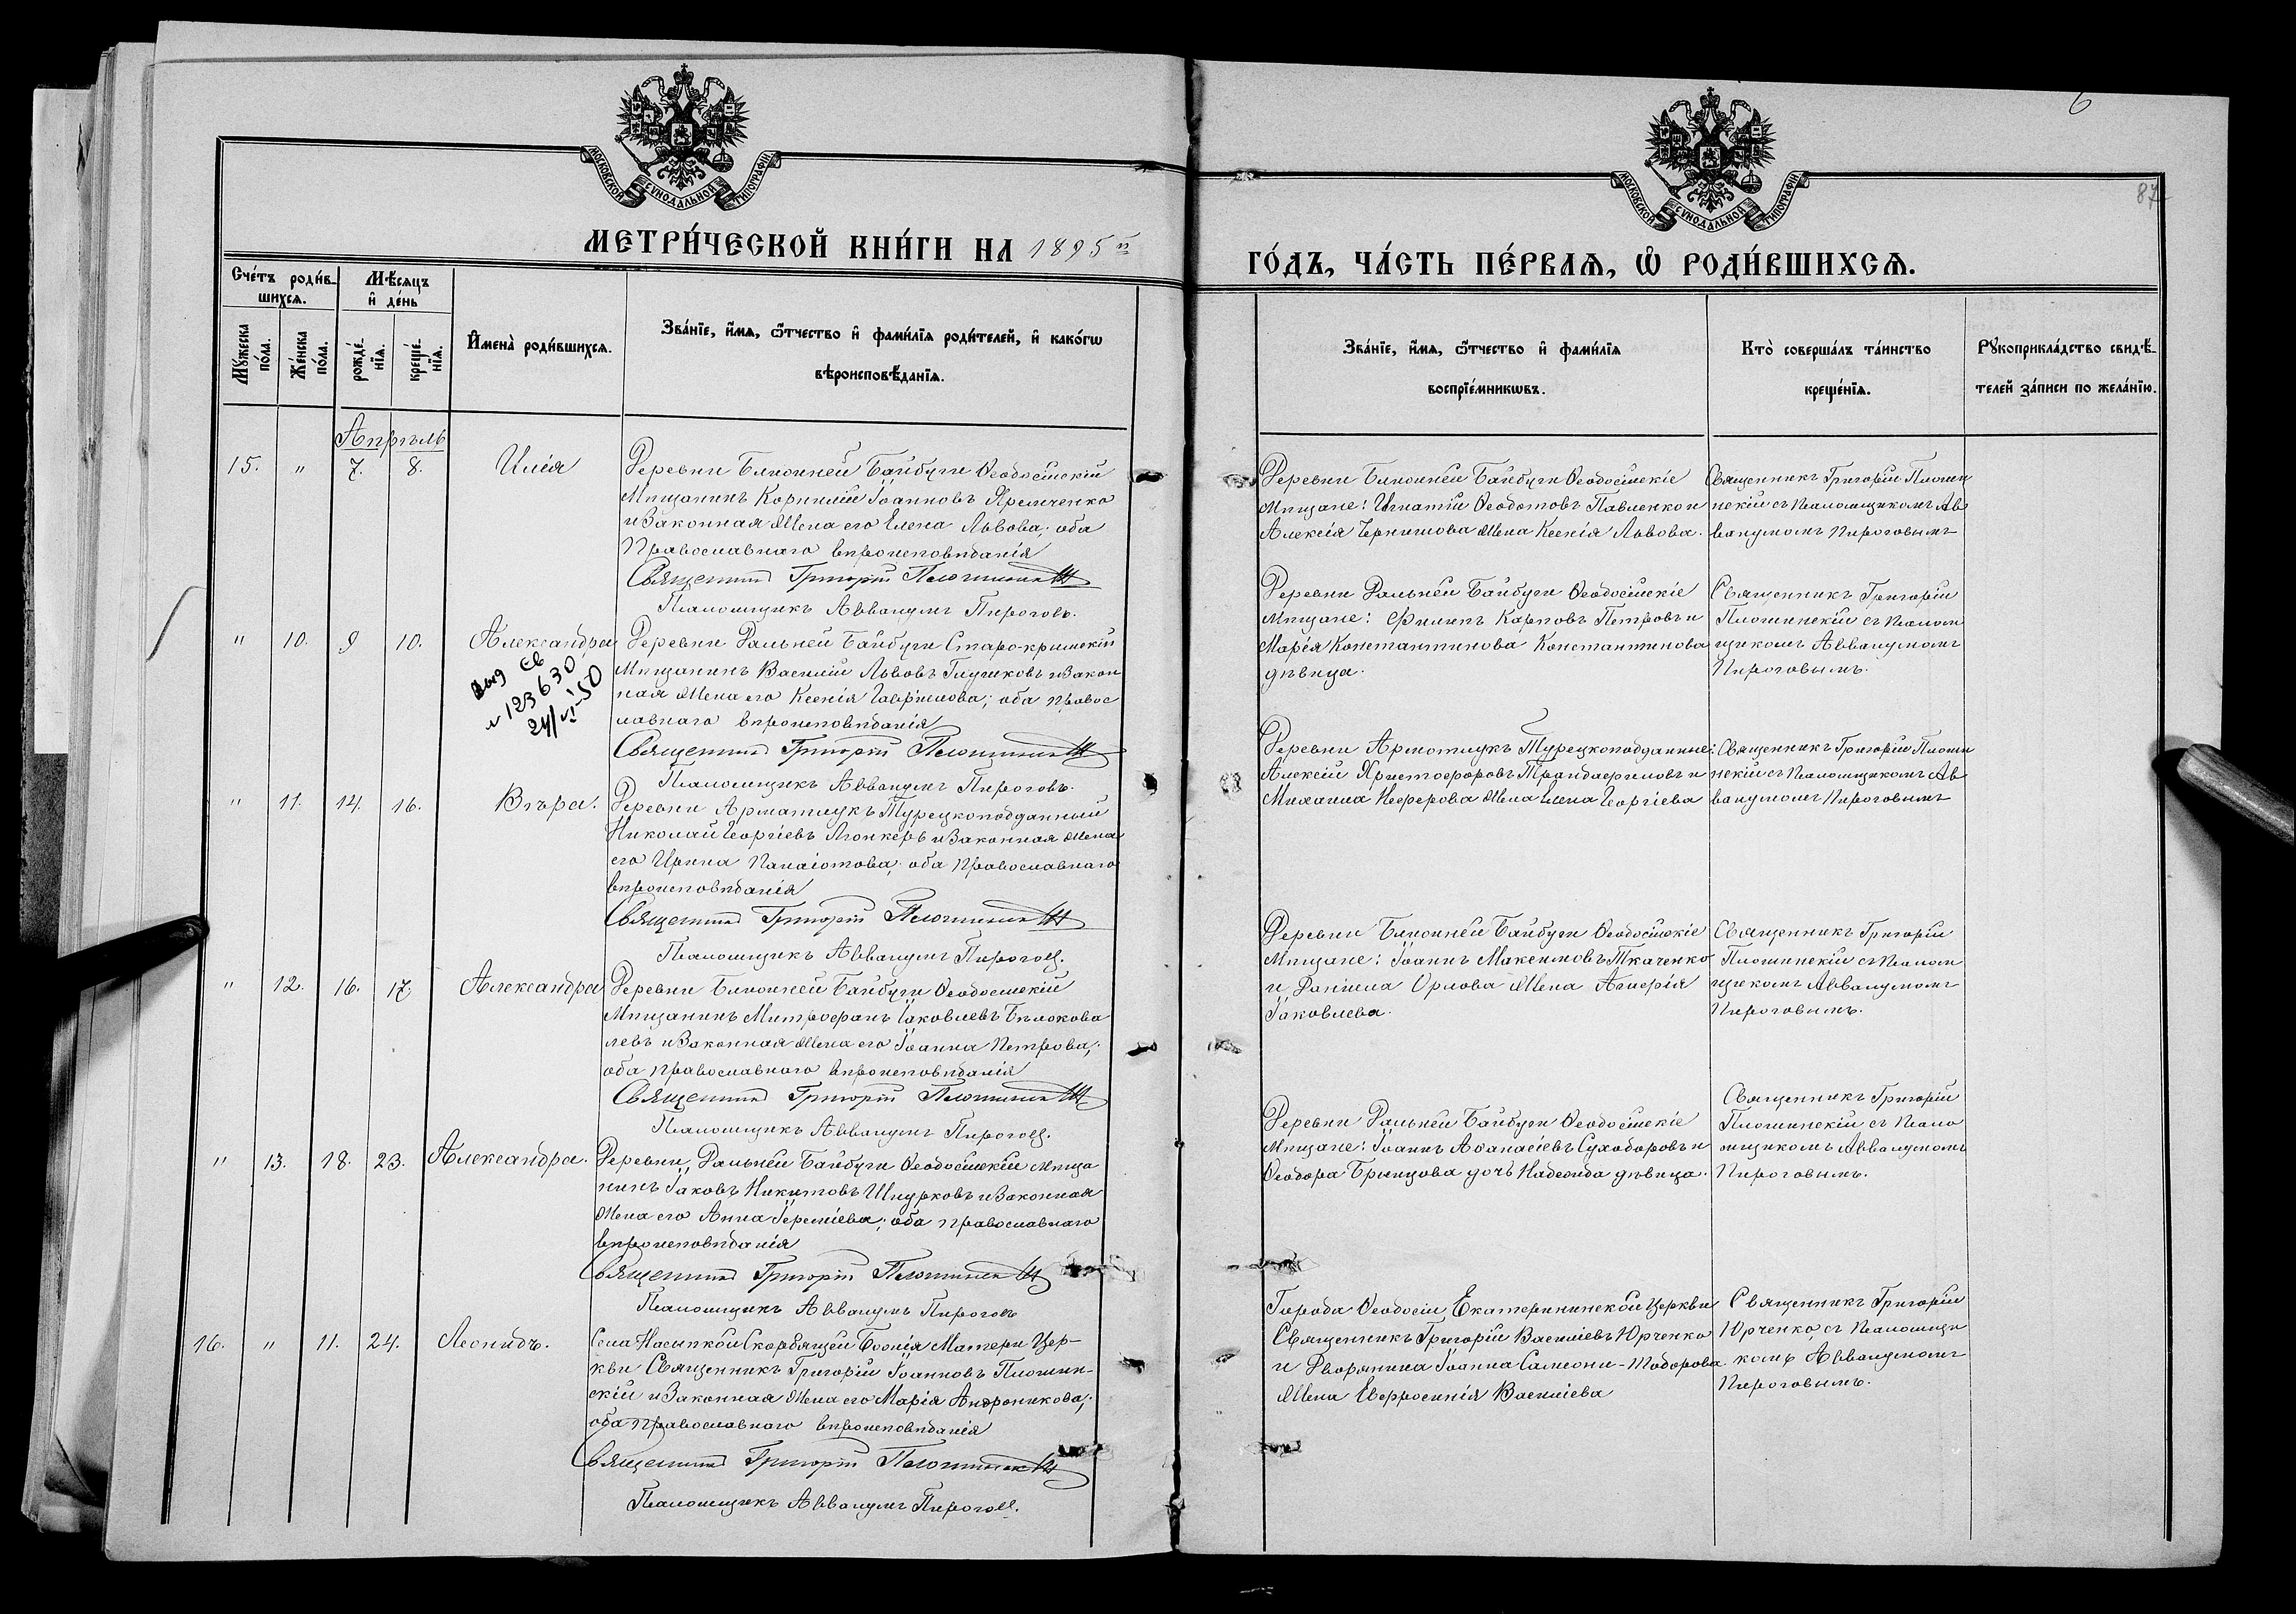 6
87
МОСКОВСКОЙ СѴНОДАЛЬНОЙ ТИПОГРАФІИ
МОСКОВСКОЙ СѴНОДАЛЬНОЙ ТИПОГРАФІИ
МЕТРИ́ЧЕСКОЙ КНИ́ГИ НА 1895й
ГО́ДЪ, ЧА́СТЬ ПЕ́РВАѦ, Ѡ РОДИ́ВШИХСѦ.
Сче́тъ роди́в-
шихсѧ.
Мѣсѧцъ
и де́нь
Мꙋ́жеска
по́ла.
Же́нска
по́ла.
рожде́-
нїѧ.
креще́-
нїѧ.
Имена̀ роди́вшихсѧ.
Зва́нїе, и́мѧ, ѻ҆́тчество и фами́лїѧ роди́телей, и како́гѡ
вѣроисповѣ́данїѧ.
Зва́нїе, и́мѧ, ѻ҆́тчество и фами́лїѧ
воспрїе́мникѡвъ.
Кто̀ соверша́лъ та́инство
креще́нїѧ.
Рꙋкоприкла́дство свидѣ́-
телей за́писи по жела́нїю.
Апрѣль
15. " 7. 8. Илія
Деревни Ближней Байбуги Ѳеодосійскій
Мѣщанинъ Корнилій Іоанновъ Яремченко
и Законная Жена его Елена Львова; оба
Православнаго вѣроисповѣданія
Священникъ Григорій Плошинскій
Псаломщикъ Аввакумъ Пироговъ.
Деревни Ближней Байбуги Ѳеодосійскіе
Мѣщане: Игнатій Ѳеодотовъ Павленко и
Алексія Чернышова Жена Ксенія Львова.
Священникъ Григорій Плоши
нскій съ Псаломщикомъ Ав
вакумомъ Пироговымъ
" 10. 9 10. Александра
Выд Св
№ 123630
24/VI-50
Деревни Дальней Байбуги Старо-крымскій
Мѣщанинъ Василій Львовъ Глушковъ и Закон
ная Жена его Ксенія Гавріилова; оба правос
лавнаго вѣроисповѣданія
Священникъ Григорій Плошинскій
Псаломщикъ Аввакумъ Пироговъ.
Деревни Дальней Байбуги Ѳеодосійскіе
Мѣщане: Филипъ Карповъ Петровъ и
Марія Константинова Константинова
дѣвица.
Священникъ Григорій
Плошинскій съ Псалом
щикомъ Аввакумомъ
Пироговымъ.
" 11. 14. 16. Вѣра.
Деревни Арматлукъ Турецкоподданный
Николай Георгіевъ и Законная Жена
его Ирина Панаіотова; оба Православнаго
вѣроисповѣданія
Священникъ Григорій Плошинскій
Псаломщикъ Аввакумъ Пироговъ.
Деревни Армотлукъ Турецкоподданные:
Алексій Христофоровъ Трандафиловъ и
Михаила Жена Елена Георгіева
Священникъ Григорій Плоши
нскій съ Псаломщикомъ Ав
вакумомъ Пироговымъ
" 12. 16. 17. Александра
Деревни Ближней Байбуги Ѳеодосійскій
Мѣщанинъ Митрофанъ Іаковлевъ Бѣлокова
левъ и Законная Жена его Іоанна Петрова;
оба православнаго вѣроисповѣданія
Священникъ Григорій Плошинскій
Псаломщикъ Аввакумъ Пироговъ.
Деревни Ближней Байбуги Ѳеодосійскіе
Мѣщане: Іоаннъ Максимовъ Ткаченко
и Даніила Орлова Жена Гликерія
Іаковлева.
Священникъ Григорій
Плошинскій съ Псалом
щикомъ Аввакумомъ
Пироговымъ.
" 13. 18. 23. Александра.
Деревни Дальней Байбуги Ѳеодосійскій Мѣща
нинъ Іаковъ Никитовъ Шнурковъ и Законная
Жена его Анна Іереміева; оба православнаго
вѣроисповѣданія
Священникъ Григорій Плошинскій
Псаломщикъ Аввакумъ Пироговъ
Деревни Дальней Байбуги Ѳеодосійскіе
Мѣщане: Іоаннъ Аѳанасіевъ Суходоровъ и
Ѳеодора Бринцова дочь Надежда дѣвица.
Священникъ Григорій
Плошинскій съ Псало
мщикомъ Аввакумомъ
Пироговымъ.
16. " 11. 24. Леонидъ.
Села Насыпкой Скорбящей Божія Матери Цер-
кви Священникъ Григорій Іоанновъ Плошин-
скій и Законная Жена его Марія Андроникова;
оба Православнаго вѣроисповѣданія
Священникъ Григорій Плошинскій
Псаломщикъ Аввакумъ Пироговъ.
Города Ѳеодосіи Екатерининской Церкви
Священникъ Григорій Василіевъ Юрченко
и Дворянина Іоанна Саміони-Тодорова
Жена Евфросинія Василіева
Священникъ Григорій
Юрченко съ Псаломщи
комъ Аввакумомъ
Пироговымъ.